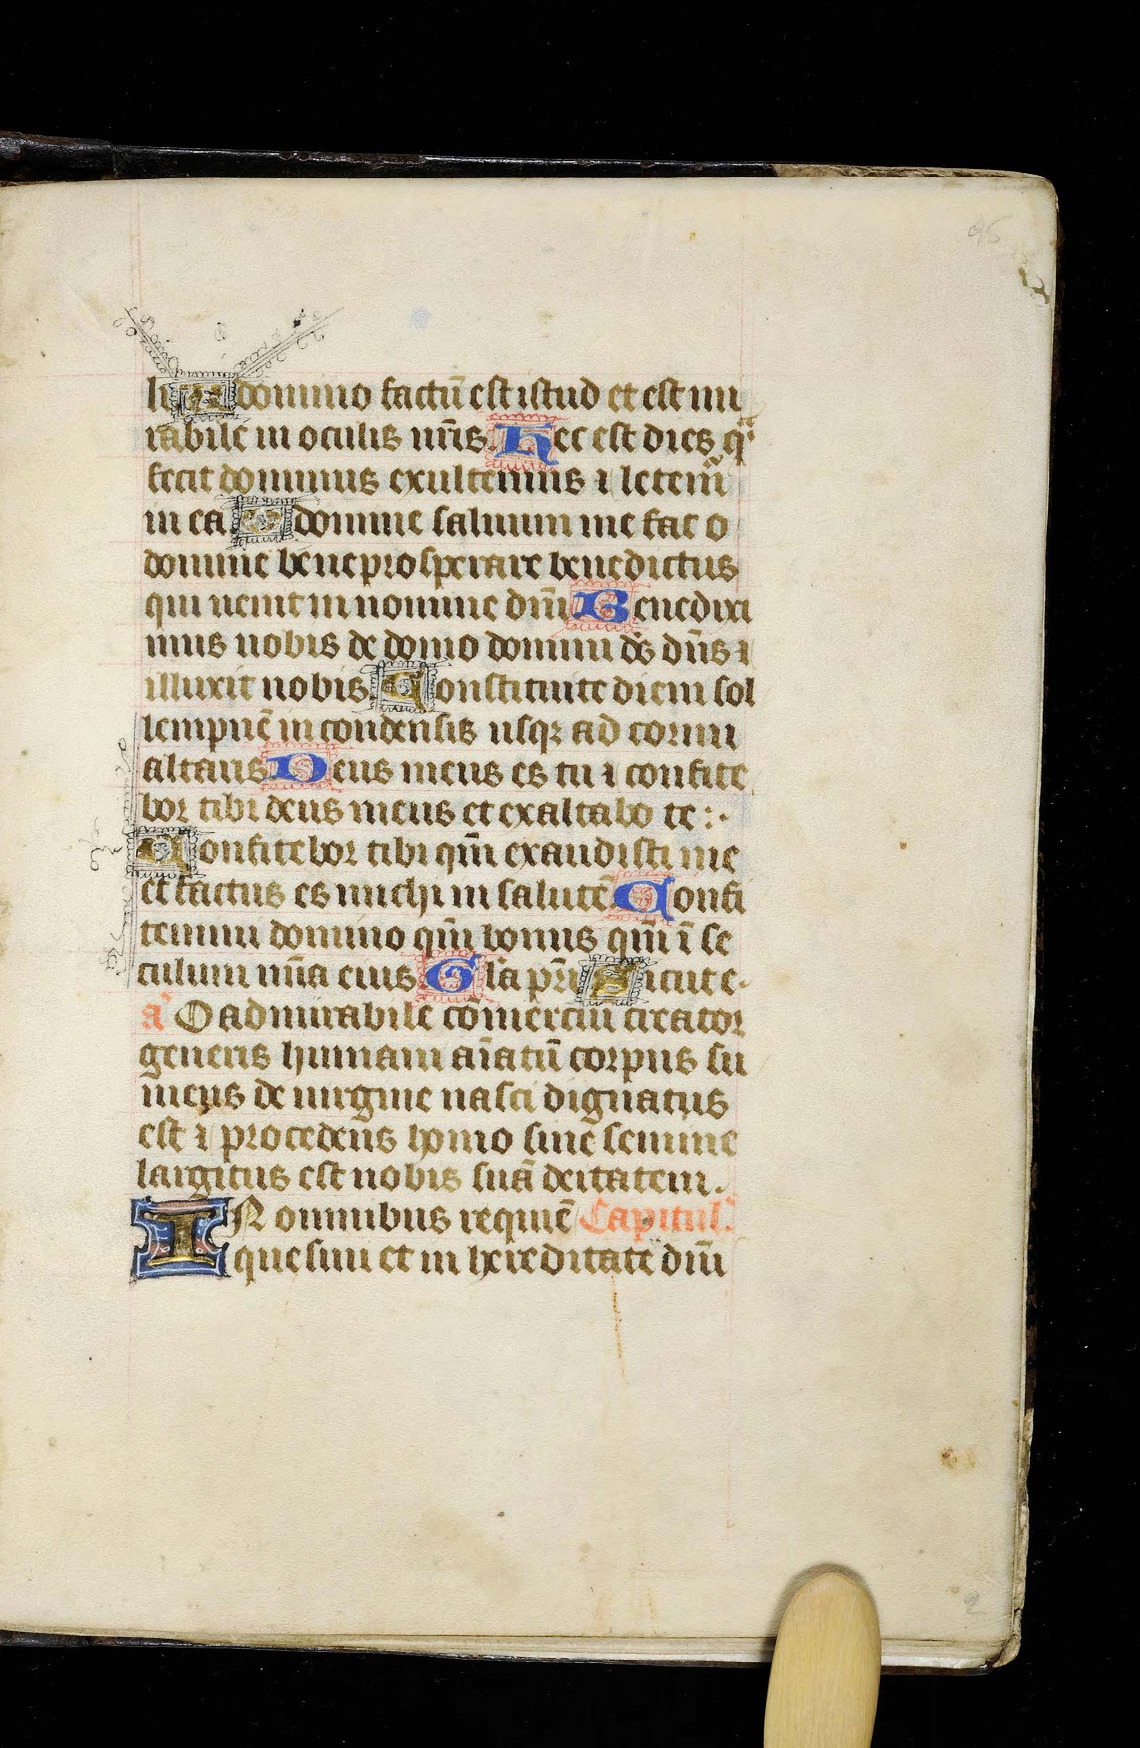 95
li A domino factū est istud et est mi
rabile in oculis nr̄is. Hec est dies qͣ
fecit dominus exultemus ⁊ letem̄
in ea O domine saluum me fac o
domine bene prosperare benedictus
qui uenit in nomine dn̄i Benedixi
mus uobis de domo domini ds̄ dn̄s ⁊
illuxit nobis. Constituite diem sol
lempnē in condensis usqꝫ ad cornu
altaris Deus meus es tu ⁊ confite
bor tibi deus meus et exaltabo te :·
Confitebor tibi qm̄ exaudisti me
et factus es michi in salutē. Confi
temini domino qm̄ bonus qm̄ ī se
culum mīa eius Gl̄a pr̄i Sicut e·
a͛ O admirabile cōmerciū creator
generis humani aīatū corpus su
mens de uirgine nasci dignatus
est ⁊ procedens homo sine semine
largitus est nobis suā deitatem.
IN omnibus requiē Capitul.
quesiui et in hereditate dn̄i
2